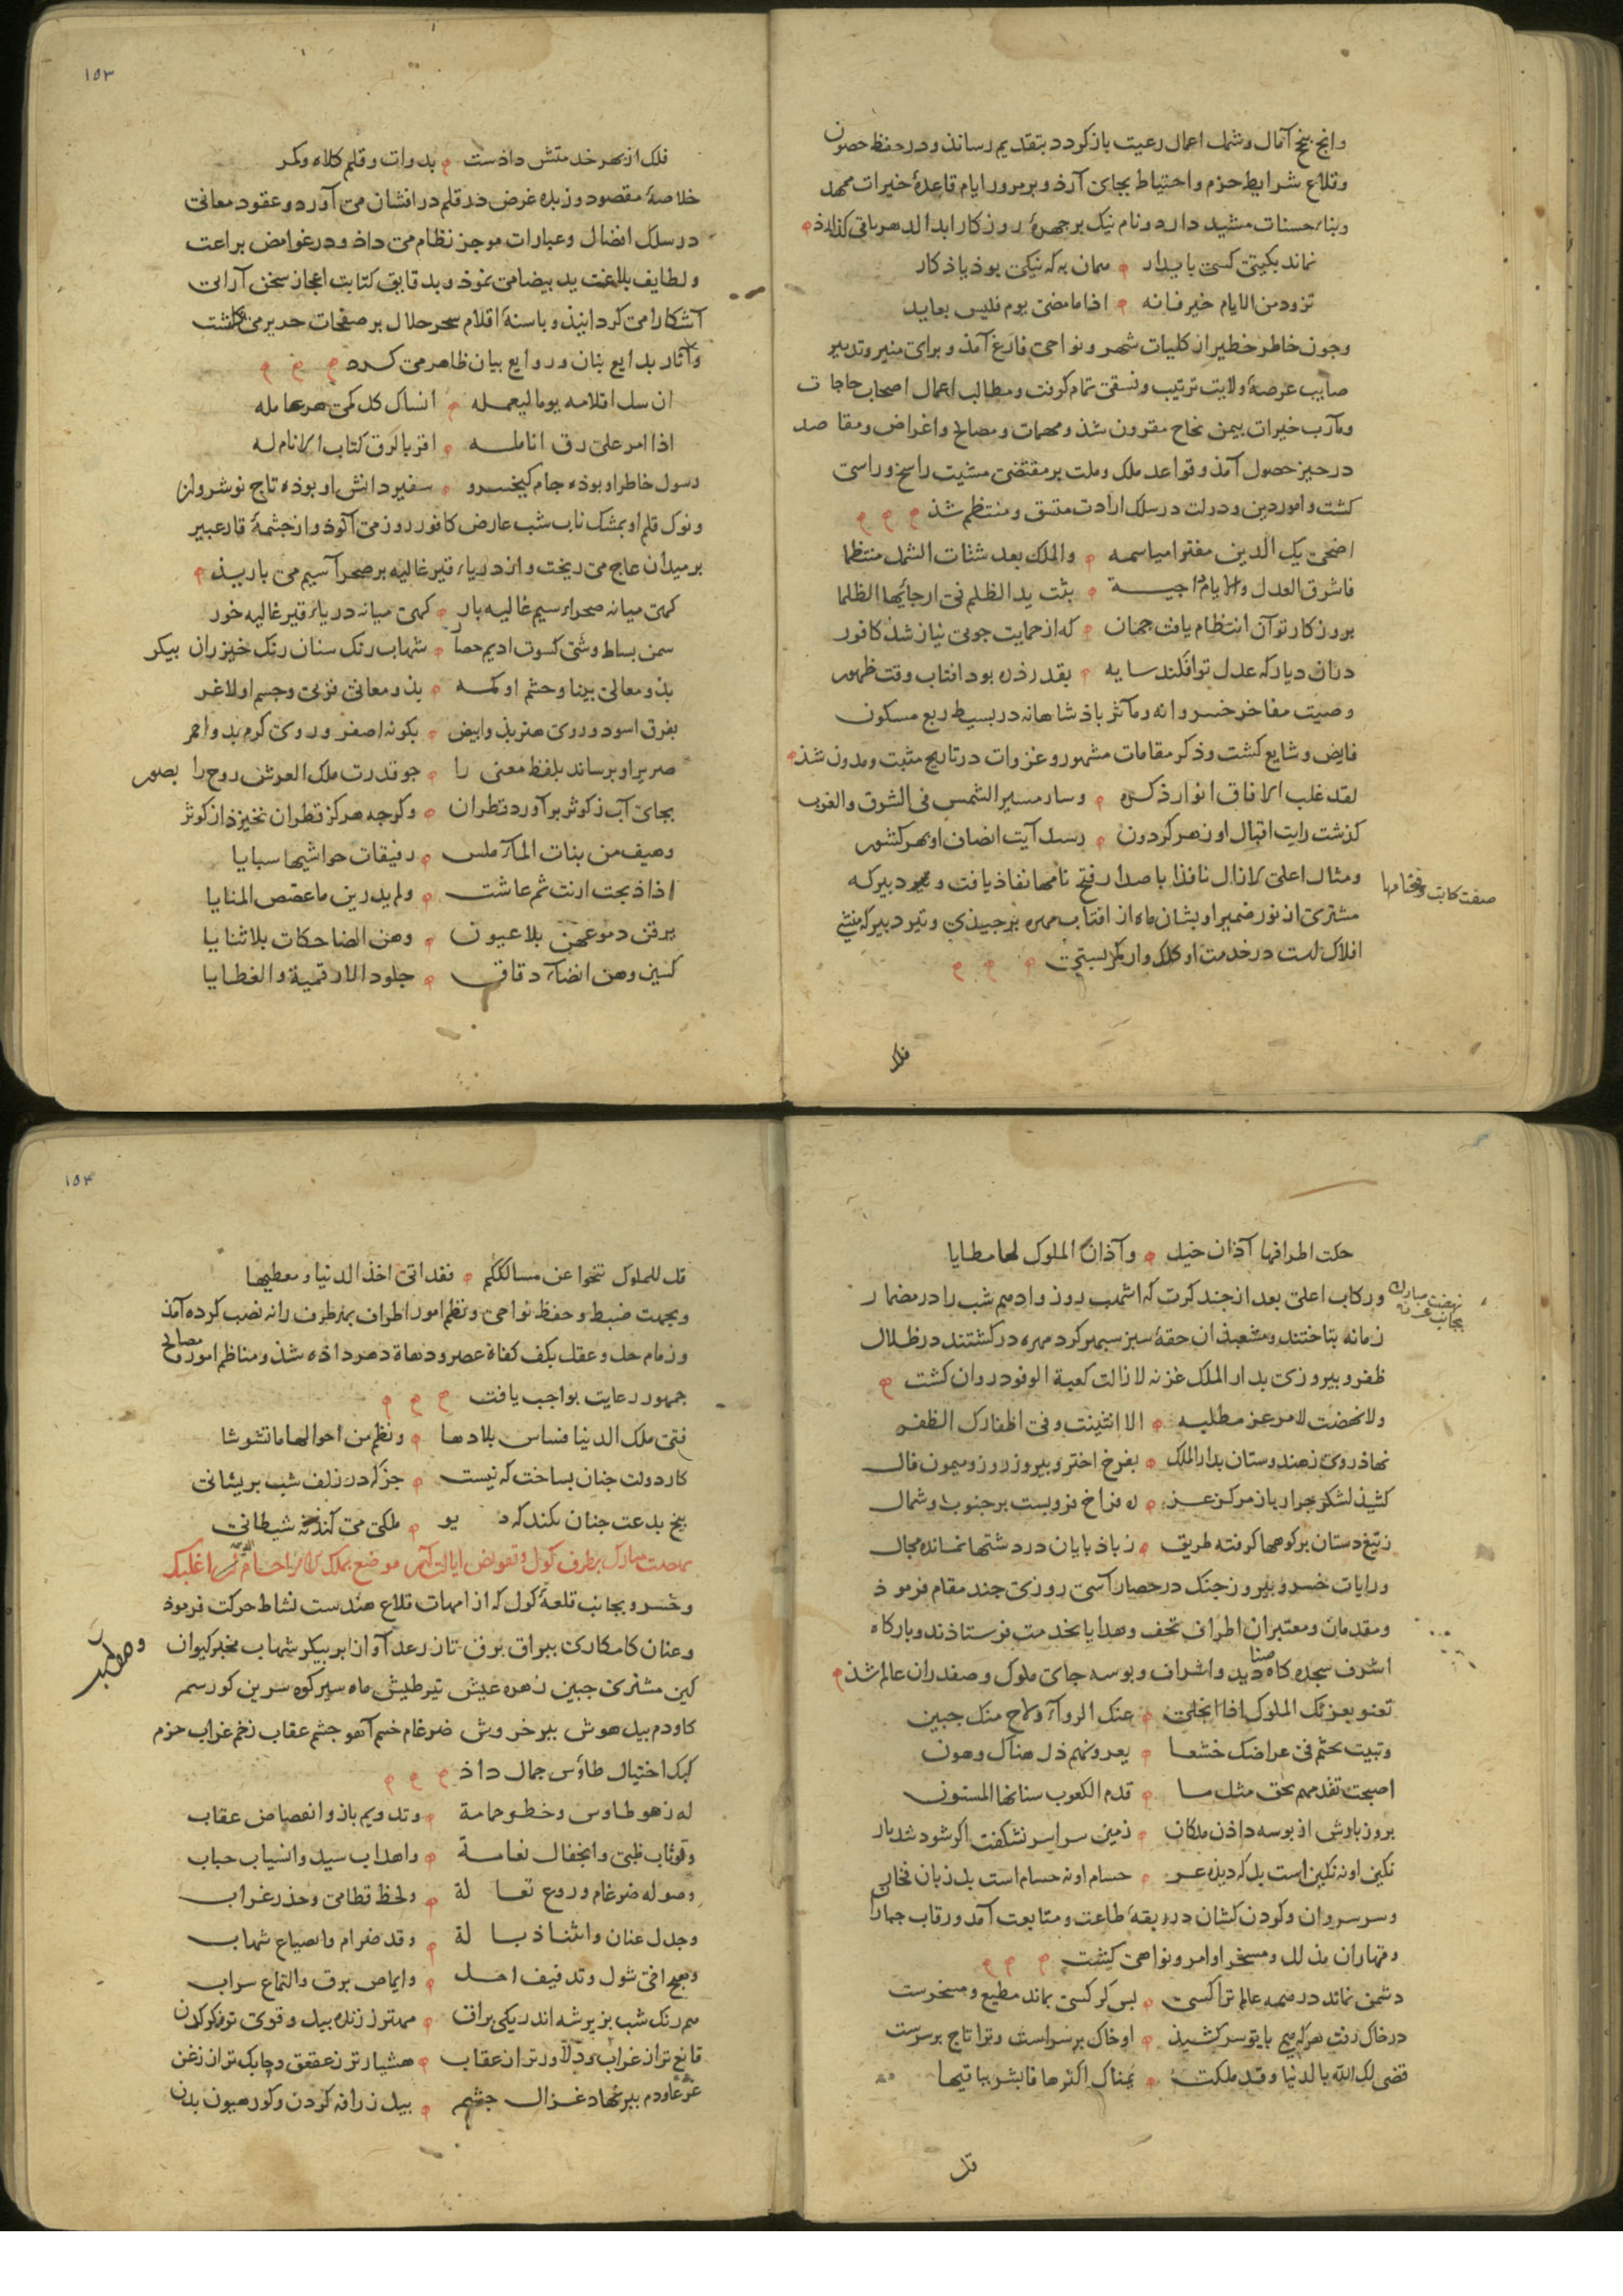 وانچ نجح آمال وشمل اعمال رعیت باز کردد بتقدیم رساند ودر حفظ حصون
وقلاع شرایط حزم واحتیاط بجای آرد وبر مرور ایام قاعدهٔ خیرات ممهد
وبناء حسنات مشید دارد ونام نیک بر جهرهٔ روزکار ابد الدهر باقی کذارد
نماند بکیتی کسی بایدار همان به که نیکی بوذ یاذکار
تزود من الایام خیر فانه اذا ما مضی یوم فلیس بعاید
وجون خاطر خطیر از کلیات شهر ونواحی فارغ آمذ وبرای منیر وتدبیر
صایب عرصهٔ ولایت ترتیب ونسقی تمام کرفت ومطالب اعمال اصحاب حاجات
ومآرب خیرات بیمن نجاح مقرون شذ ومهمات ومصالح واغراض ومقاصد
در حیز حصول آمذ وقواعد ملک وملت بر مقتضی مشیت راسخ وراسی
کشت وامور دین ودولت در سلک ارادت متسق ومنتظم شذ
اضحی بک الدین مفترا مباسمه والملک بعد شتات الشمل منتظما
فاشرق العدل والایام داجیة بثت ید الظلم فی ارجائها الظلما
بروزکار تو آن انتظام یافت جهان که از حمایت جویی نیاز شذ کافور
دران دیار که عدل تو افکند سایه بقدر ذره بود افتاب وقت ظهور
وصیت مفاخر خسروانه ومآثر باذشاهانه در بسیط ربع مسکون
فایض وشایع کشت وذکر مقامات مشهور وغزوات در تاریخ مثبت ومدون شذ
لقد غلب الافاق انوار ذکره وسار مسیر الشمس فی الشرق والغرب
کذشت رایت اقبال او زهر کردون رسید آیت انصاف او بهر کشور
ومثال اعلی لا زال نافذا باصدار فتح نامها نفاذ یافت و دبیر که
صفت کتابت وفتح نامها
مشتری از نور ضمیر او بشان ماه از افتاب بهره برجیذی وتیر دبیر که منشی
افلاک است در خدمت او کلک وار کمر بستی
فلک
۱۵۳
فلک از بهر خدمتش داذست بدوات وقلم کلاه وکمر
خلاصهٔ مقصود وزبدهٔ غرض در قلم درافشان می آورد وعقود معانی
در سلک افضال وعبارات موجز نظام می داذ ودر غوامض براعت
ولطایف بلاغت ید بیضا می نموذ وبدقایق کتابت اعجاز سخن آرائی
آشکارا می کردانیذ وباسنهٔ اقلام سحر حلال بر صفحات حریر می نکاشت
وآثار بدایع بنان وروایع بیان ظاهر می کرد
ان سل اقلامه یوما لیعمله انساک کل کمی هز عامله
اذا امر علی رق انامله اقر بالرق کتاب الانام له
رسول خاطر او بوذه جام کیخسرو سفیر دانش او بوذه تاج نوشروان
ونوک قلم او بمشک ناب شب عارض کافور روز می آلوذ واز جشمهٔ قار عبیر
بر میدان عاج می ریخت واز دریاء قیر غالیه بر صحراء سیم می باریذ
کهی میانه صحراء سیم غالیه بار کهی میانه دریاء قیر غالیه خور
سمن بساط وشی کسوت ادیم حصار شهاب رنک سنان رنک خیزران بیکر
بذو معالی بینا وجشم او اکمه بذو معانی فربی وجسم او لاغر
بفرق اسود وروی هنر بذو ابیض بکونه اصفر وروی کرم بدو احمر
صریر او برساند بلفظ معنی را جو قدرت ملک العرش روح را بصور
بجای آب ز کوثر برآورد قطران وکرجه هرکز قطران نخیزذ از کوثر
وهیف من بنات الماء ملس رقیقات حواشیها سبایا
اذا ذبحت ارنت ثم عاشت ولم یدرین ما غصص المنایا
یرقن دموعهن بلا عیون وهن الضاحکات بلا ثنایا
کسین وهن انضاء دقاق جلود الارقمیة والغطایا
حکت اطرافها آذان خیل وآذان الملوک لها مطایا
ورکاب اعلی بعد از جند کرت که اشهب روز وادهم شب را در مضمار
نهضت مبارک بجانب غزنه
زمانه بتاختند ومشعبذان حقهٔ سبز سبهر کرد مهره در کشتند در ظلال
ظفر وبیروزی بدار الملک غزنه لا زالت کعبة الوفود روان کشت
ولا نهضت لامر عز مطلبه الا انثنیت وفی اظفارک الظفر
نهاذ روی ز هندوستان بدار الملک بفرخ اختر وبیروز روز ومیمون فال
کشیذ لشکر جرار باز مرکز عز ره فراخ فروبست بر جنوب وشمال
ز تیغ دستان بر کوهها کرفته طریق ز باذ بایان در دشتها نمانده مجال
ورایات خسرو بیروز جنک در حصار آسی روزی جند مقام فرموذ
ومقدمان ومعتبران اطراف تحف وهدایا بخدمت فرستاذند وبارکاه
اشرف سجده کاه صنادید واشراف وبوسه جای ملوک وصفدران عالم شذ
تعنو بعزتک الملوک اذا انجلی عنک الرواء ولاح منک جبین
وتبیت تحثم فی عراضک خشعا یعرونهم ذل هناک وهون
اصبحت تقدمهم بحق مثل ما قدم الکعوب سنانها المسنون
بروز بارش از بوسه داذن ملکان زمین سراسر نشکفت اکر شود شد یار
نکین او نه نکین است بل که دیذه عز حسام او نه حسام است بل زبان فخار
وسر سروان وکردن کشان در ربقهٔ طاعت ومتابعت آمد ورقاب جباران
وقهاران مذلل ومسخر اوامر ونواهی کشت
دشمن نماند در همه عالم ترا کسی بس کر کسی بماند مطیع ومسخرست
در خاک رفت هرکه همی با تو سر کشیذ او خاک بر سراست وترا تاج بر سرست
قضی لک الله بالدنیا وقد ملکت یمناک اکثرها فابشر بباقیها
قل
۱۵۴
قل للملوک تنحوا عن مسالککم فقد اتی اخذ الدنیا ومعطیها
وبجهت ضبط وحفظ نواحی ونظم امور اطراف بهر طرف رانه نصب کرده آمذ
وزمام حل وعقد بکف کفاة عصر ودهاة دهر داذه شذ ومناظم امور ومصالح
جمهور رعایت بواجب یافت
فتی ملک الدنیا فساس بلادها ونظم من احوالها ما تشوشا
کار دولت جنان بساخت که نیست جز که در زلف شب بریشانی
بیخ بدعت جنان بکند که دیو ملکی می کند نه شیطانی
نهضت مبارک بطرف کول وتفویض ایالت آن موضع بملک حسام الدین اغلبک
وخسرو بجانب قلعهٔ کول که از امهات قلاع هندست نشاط حرکت فرموذ
وعنان کامکاری ببراق برق تاز رعد آوا ابر بیکر شهاب مخبر کیوان
کین مشتری جبین زهره عیش تیر طیش ماه سیر کوه سرین کور سم
کاو دم بیل هوش ببر خروش ضرغام خشم آهو جشم عقاب زخم غراب حزم
کبک اختیال طاوس جمال داذ
له زهو طاوس وخطو حمامة وتدویم باز وانفصاض عقاب
وتوثاب ظبی وانجفال نعامة واهداب سید وانسیاب حباب
وصوله ضرغام وروغ ثعالة ولحظ قطامی وحذر غراب
وجدل عنان وانثناء ذبالة وقد ضرام وانصیاع شهاب
ومیض برق والتماع سراب
هم رنک شب بزیر شه اندر یکی براق مهتر ز زنده بیل وقوی تر ز کرکدن
قانع تر از غراب ودلاور تر از عقاب هشیار تر ز عقعق وجابک تر از زغن
غژغاو دم ببر نهاد غزال جشم بیل زرافه کردن وکور هیون بدن